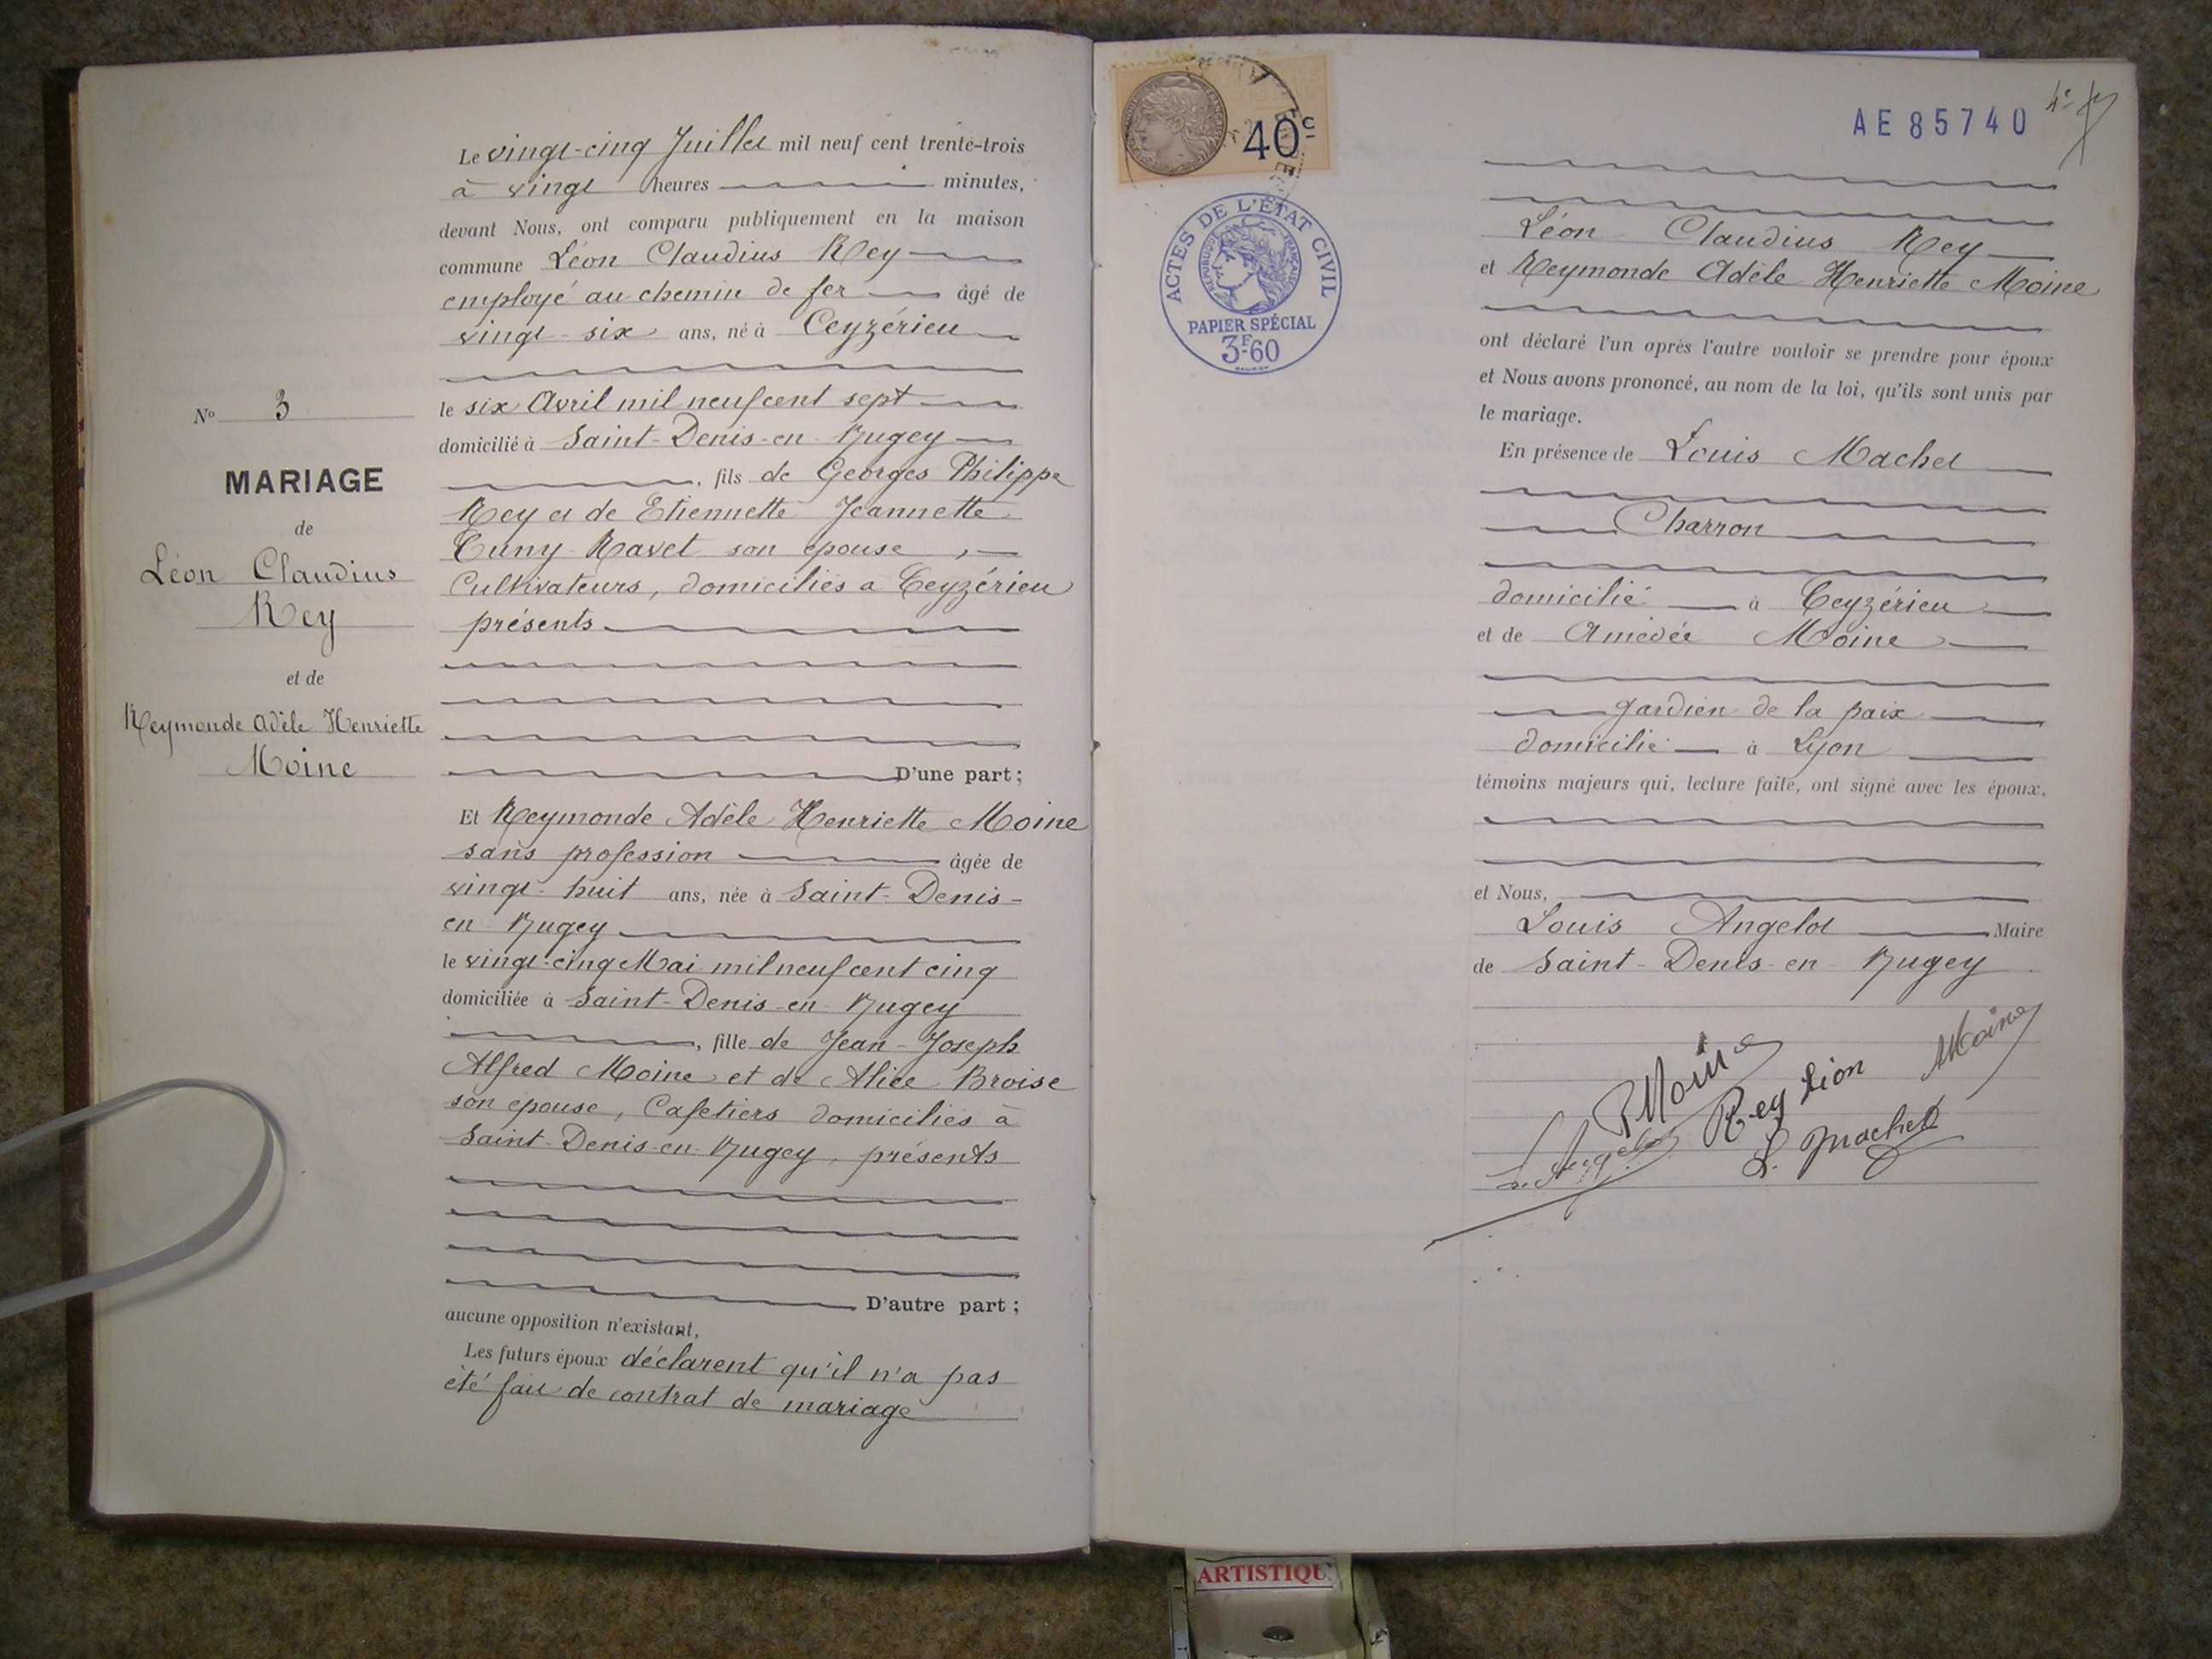 Le vingt-cinq Juillet mil neuf cent trente-trois
à vingt heures minutes,
devant Nous, ont comparu publiquement en la maison
commune Léon Claudius Rey
employé au chemin de fer âgé de
vingt-six ans, né à Ceyzérieu
le six Avril mil neuf cent sept
domicilié à Saint-Denis-en-Bugey
, fils de Georges Philippe
Rey et de Etiennette Jeannette
Cuny-Ravet son épouse,
Cultivateurs, domiciliés a Ceyzérieu
présents
D'une part;
Nº 3
MARIAGE
de
Léon Claudius
Rey
et de
Reymonde Adèle Henriette
Moine
Et Reymonde Adèle Henriette Moine
sans profession âgée de
vingt-huit ans, née à Saint-Denis-
en-Bugey
le vingt-cinq Mai mil neuf cent cinq
domiciliée à Saint-Denis-en-Bugey
, fille de Jean-Joseph
Alfred Moine et de Alice Broise
son épouse, Cafetiers domiciliés à
Saint-Denis-en-Bugey, présents
D'autre part;
aucune opposition n'existant,
Les futurs époux déclarent qu'il n'a pas
été fait de contrat de mariage
40c
ACTES DE L'ÉTAT CIVIL
RÉPUBLIQUE FRANÇAISE
PAPIER SPÉCIAL
3F60
AE85740
4e
Léon Claudius Rey
et Reymonde Adèle Henriette Moine
ont déclaré l'un après l'autre vouloir se prendre pour époux
et Nous avons prononcé, au nom de la loi, qu'ils sont unis par
le mariage.
En présence de Louis Machet
Charron
domicilié à Ceyzérieu
et de Amédée Moine
gardien de la paix
domicilié à Lyon
témoins majeurs qui, lecture faite, ont signé avec les époux,
et Nous,
Louis Angelot Maire
de Saint-Denis-en-Bugey
R Moine Rey Léon Moine
L. Angelot L. Machet
ARTISTIQU